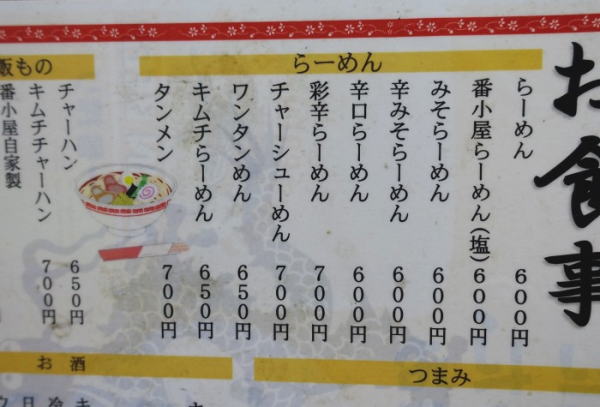 お食事
らーめん
らーめん 600円
番小屋らーめん(塩) 600円
みそらーめん 600円
辛みそらーめん 600円
辛口らーめん 600円
彩辛らーめん 700円
チャーシューめん 700円
ワンタンめん 650円
キムチらーめん 650円
タンメン 700円
飯もの
チャーハン 650円
キムチチャーハン 700円
番小屋自家製
つまみ
お酒